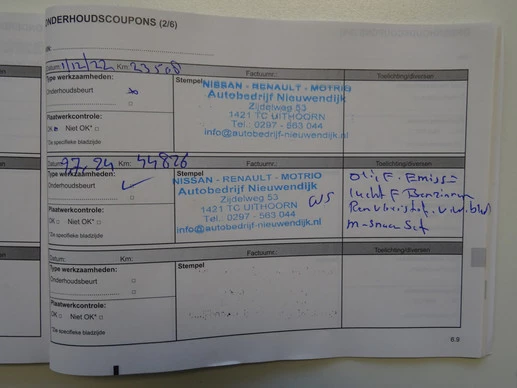 ONDERHOUDSCOUPONS (2/6)
Datum: 1/12/22 Km: 23508 Factuurnr.: Toelichting/diversen
Type werkzaamheden:
Onderhoudsbeurt
Stempel
NISSAN - RENAULT - MOTRIO
Autobedrijf Nieuwendijk
Zijdelweg 53
1421 TC UITHOORN
Tel.: 0297 - 563 044
info@autobedrijf-nieuwendijk.nl
Plaatwerkcontrole:
OK Niet OK*
*Zie specifieke bladzijde
Datum: Km: 44826 Factuurnr.: Toelichting/diversen
Type werkzaamheden:
Onderhoudsbeurt
Stempel
NISSAN - RENAULT - MOTRIO
Autobedrijf Nieuwendijk
Zijdelweg 53
1421 TC UITHOORN
Tel.: 0297 - 563 044
info@autobedrijf-nieuwendijk.nl
Plaatwerkcontrole:
OK Niet OK*
*Zie specifieke bladzijde
Datum: Km: Factuurnr.: Toelichting/diversen
Type werkzaamheden:
Onderhoudsbeurt
Stempel
Plaatwerkcontrole:
OK Niet OK*
*Zie specifieke bladzijde
6.9